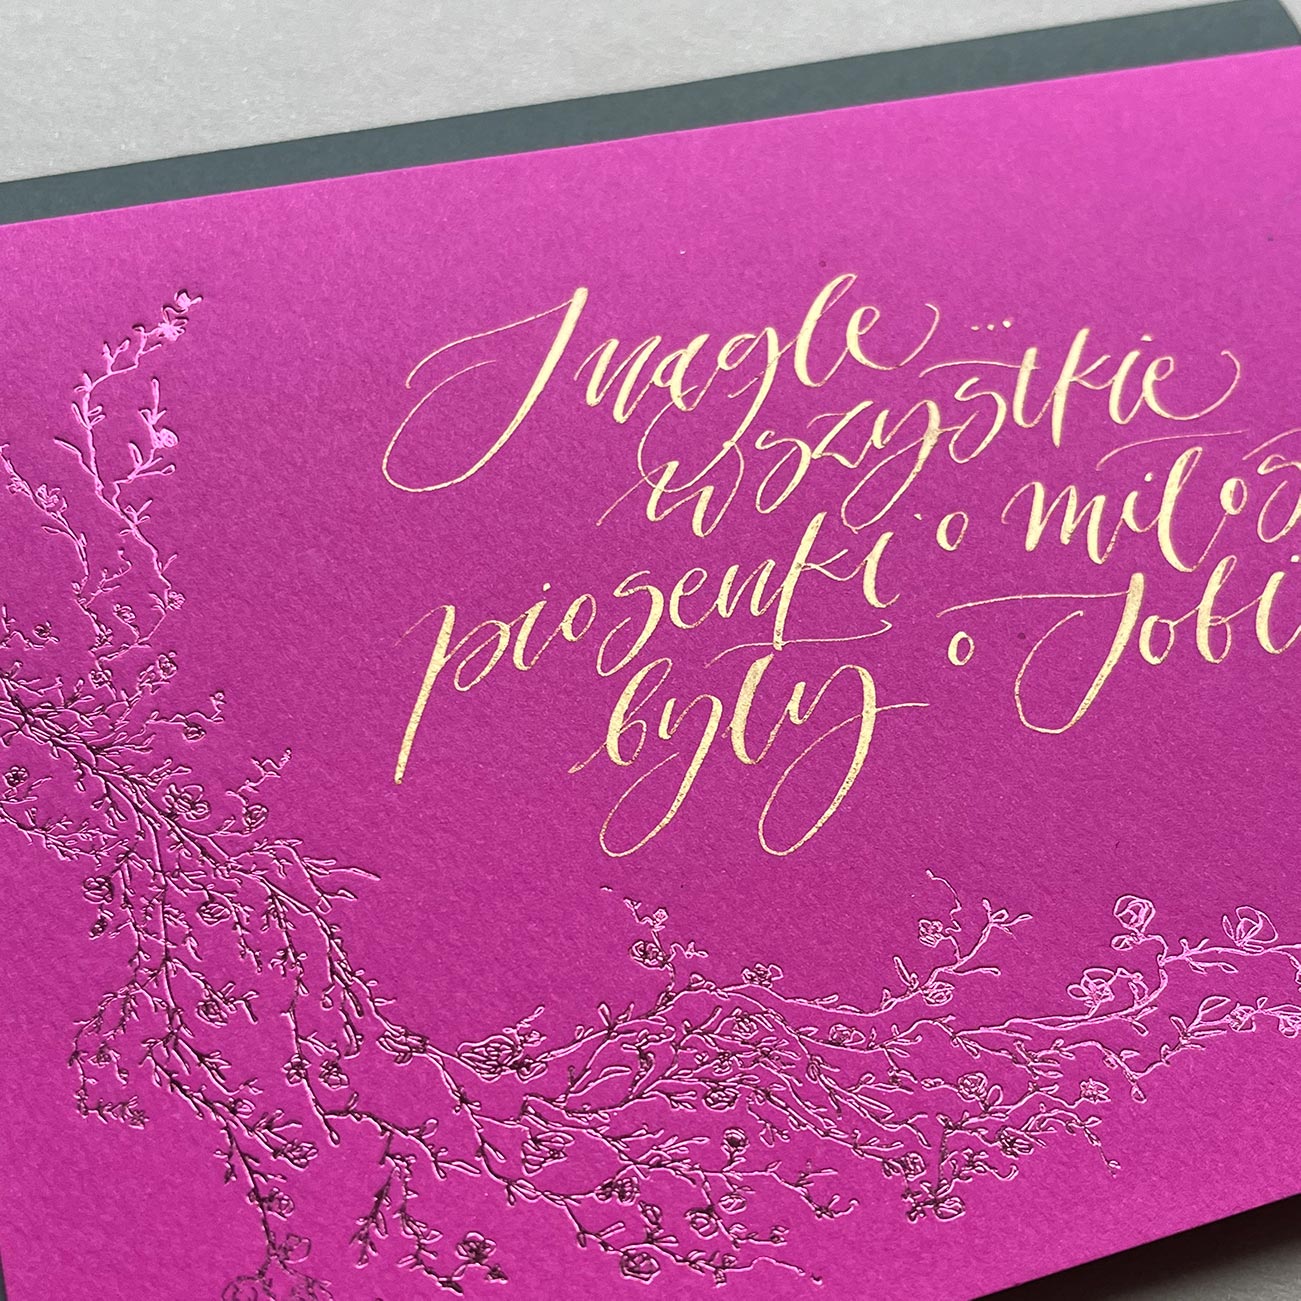 I nagle ...
wszystkie
piosenki o miłoś
były o Tobi